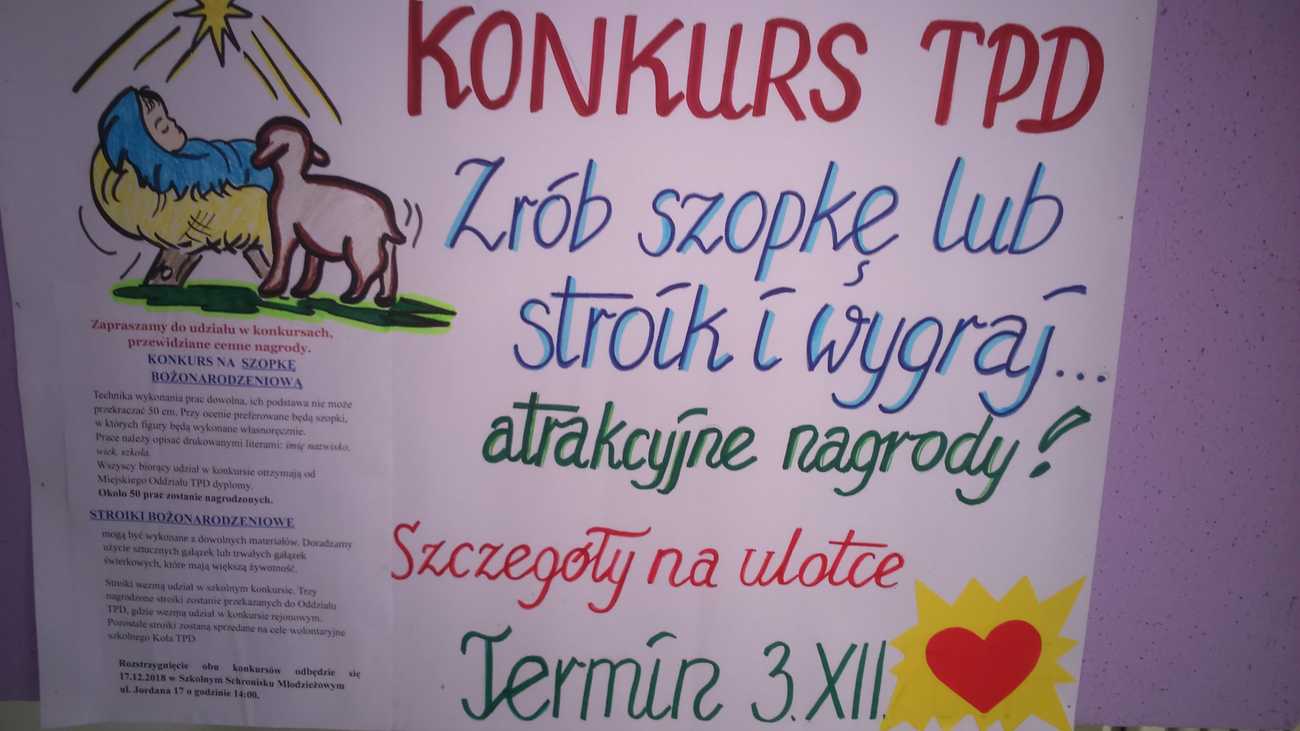 KONKURS TPD
Zrób szopkę lub
stroik i wygraj...
atrakcyjne nagrody!
Szczegóły na ulotce
Termin 3.XII.
Zapraszamy do udziału w konkursach,
przewidziane cenne nagrody.
KONKURS NA SZOPKĘ
BOŻONARODZENIOWĄ
Technika wykonania prac dowolna, ich podstawa nie może
przekraczać 50 cm. Przy ocenie preferowane będą szopki,
w których figury będą wykonane własnoręcznie.
Prace należy opisać drukowanymi literami: imię nazwisko,
wiek, szkoła.
Wszyscy biorący udział w konkursie otrzymają od
Miejskiego Oddziału TPD dyplomy.
Około 50 prac zostanie nagrodzonych.
STROIKI BOŻONARODZENIOWE
mogą być wykonane z dowolnych materiałów. Doradzamy
użycie sztucznych gałązek lub trwałych gałązek
świerkowych, które mają większą żywotność.
Stroiki wezmą udział w szkolnym konkursie. Trzy
nagrodzone stroiki zostanie przekazanych do Oddziału
TPD, gdzie wezmą udział w konkursie rejonowym.
Pozostałe stroiki zostaną sprzedane na cele wolontaryjne
szkolnego Koła TPD
Rozstrzygnięcie obu konkursów odbędzie się
17.12.2018 w Szkolnym Schronisku Młodzieżowym
ul. Jordana 17 o godzinie 14:00.